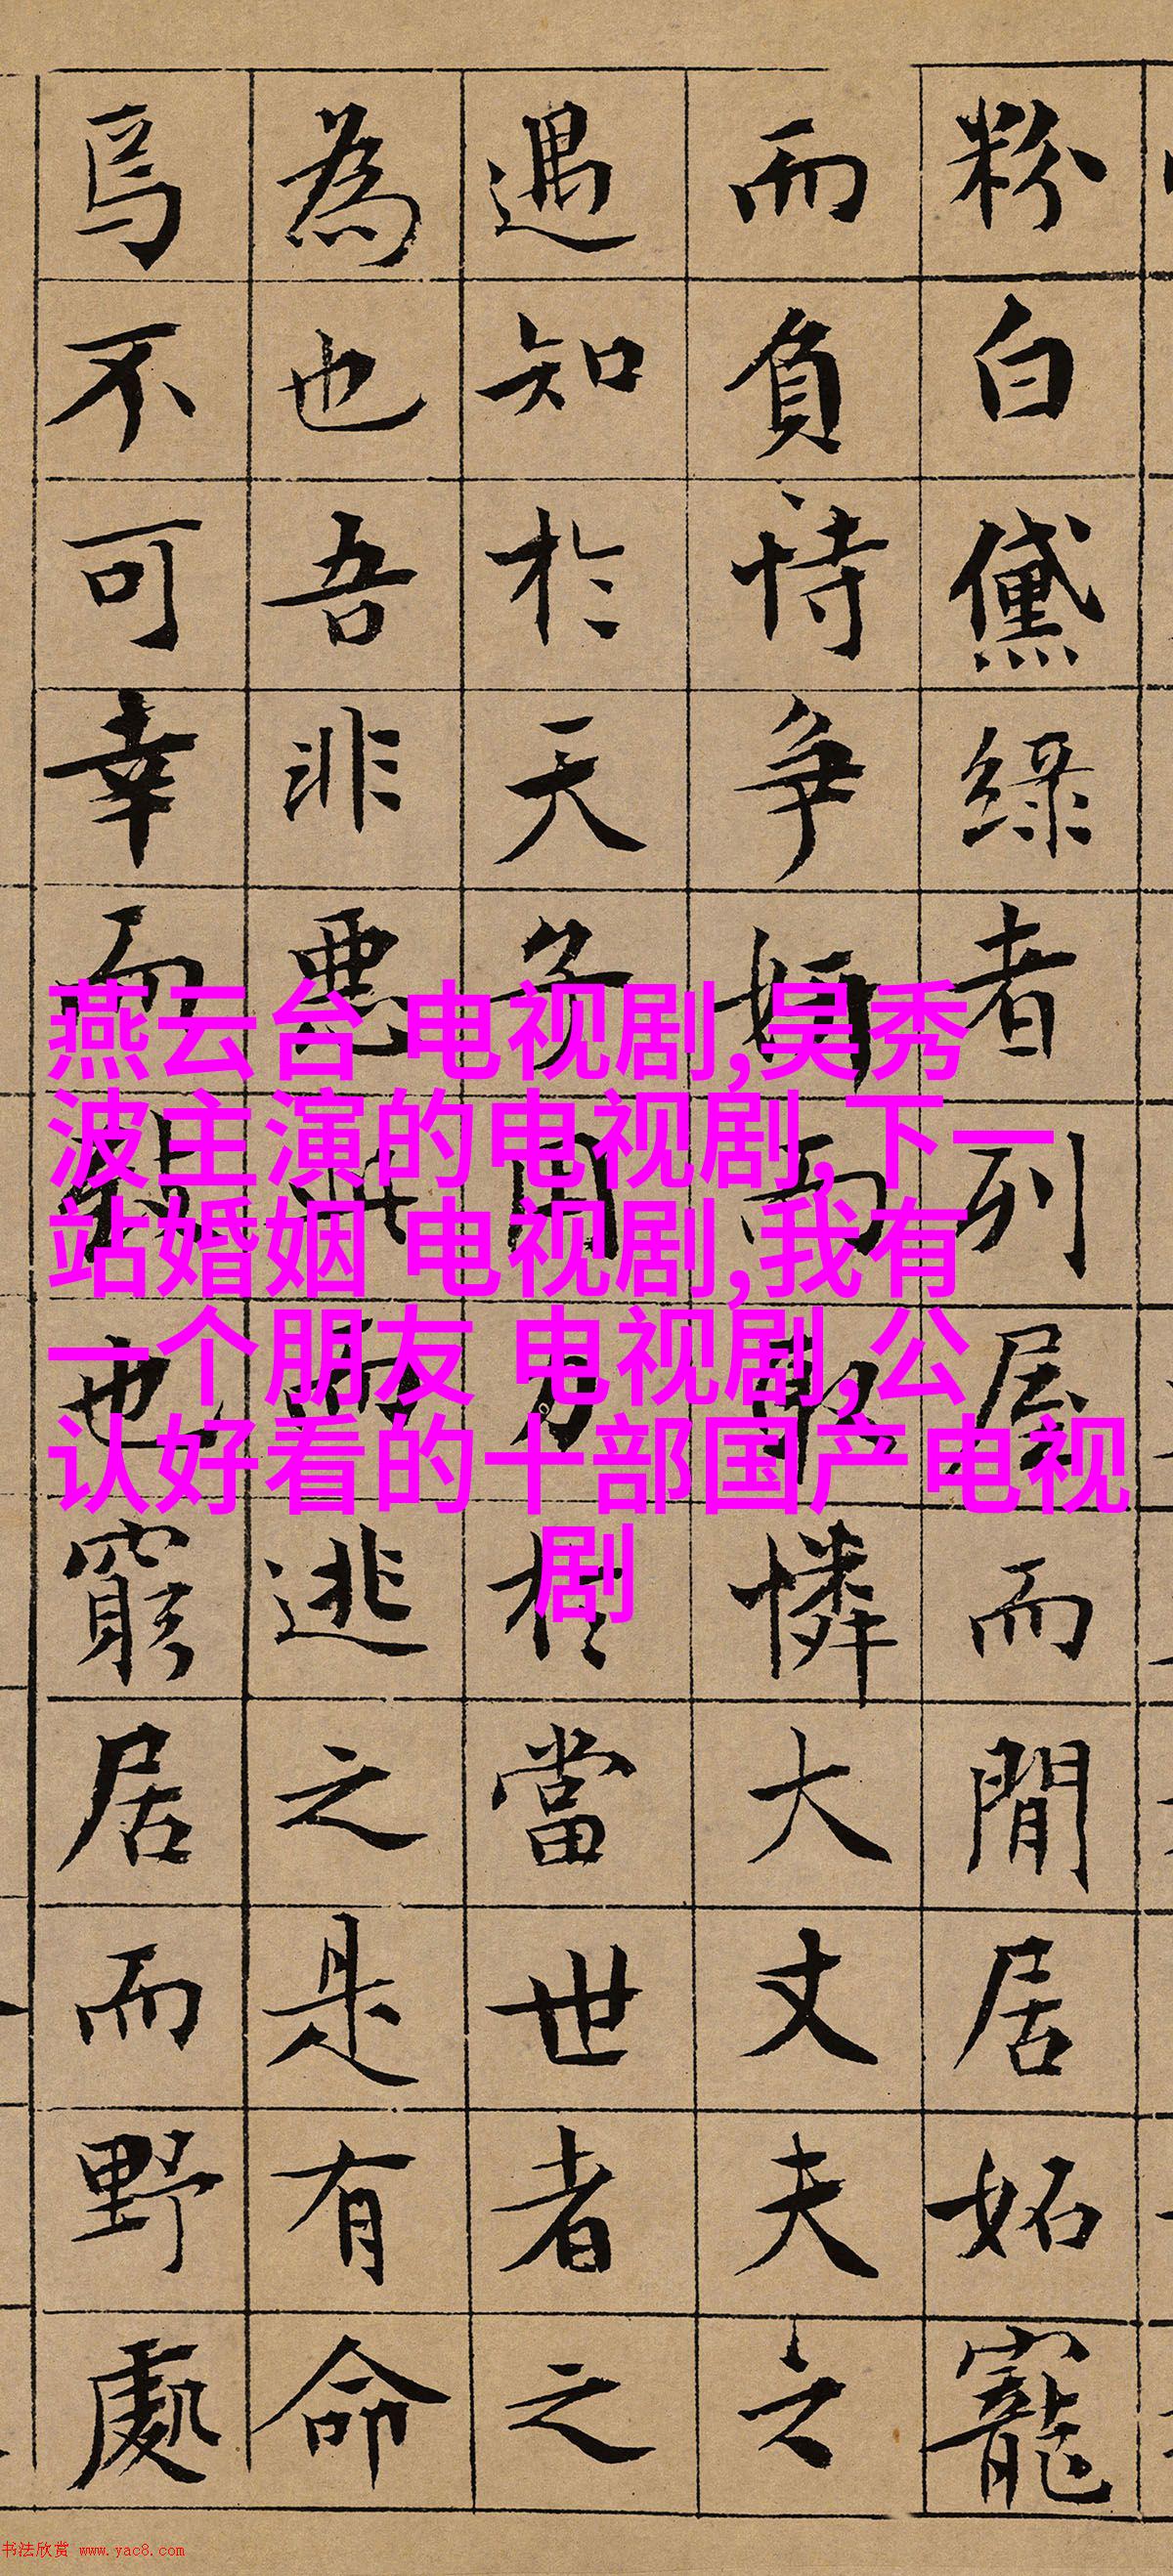 粉白黛綠者列屋而閒居妬寵
而負恃爭妍而取憐大丈夫之
遇知於天子用力於當世者之
為也吾非惡此而逃之是有命
焉不可幸而致也窮居而野處
燕云台 电视剧,吴秀
波主演的电视剧,下一
站婚姻 电视剧,我有
一个朋友 电视剧,公
认好看的十部国产电视
剧
书法欣赏 www.yac8.com